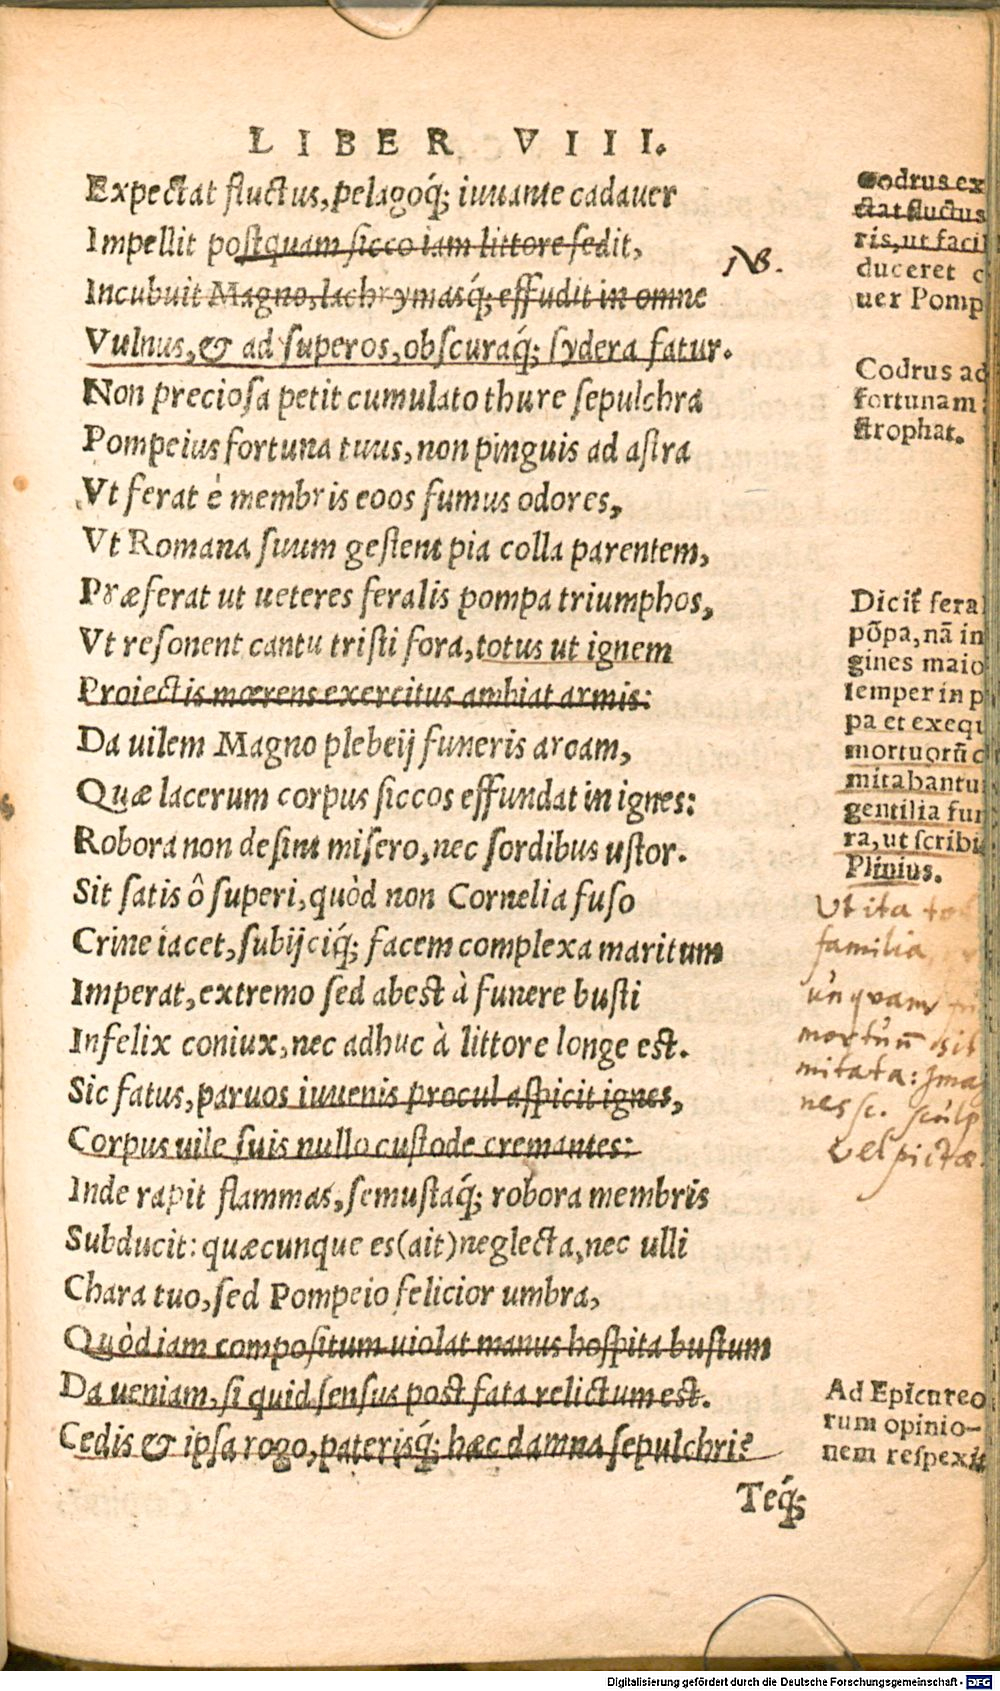 LIBER VIII.
Expectat fluctus, pelagoq́; iuuante cadauer
Impellit postquam sicco iam littore sedit,
Incubuit Magno, lachrymasq́; effudit in omne
Vulnus, & ad superos, obscuraq́; sydera fatur.
Non preciosa petit cumulato thure sepulchra
Pompeius fortuna tuus, non pinguis ad astra
Vt ferat è membris eoos fumus odores,
Vt Romana suum gestent pia colla parentem,
Præferat ut ueteres feralis pompa triumphos,
Vt resonent cantu tristi fora, totus ut ignem
Proiectis mœrens exercitus ambiat armis:
Da uilem Magno plebeij funeris arcam,
Quæ lacerum corpus siccos effundat in ignes:
Robora non desint misero, nec sordibus ustor.
Sit satis ô superi, quòd non Cornelia fuso
Crine iacet, subijciq́; facem complexa maritum
Imperat, extremo sed abest à funere busti
Infelix coniux, nec adhuc à littore longe est.
Sic fatus, paruos iuuenis procul aspicit ignes,
Corpus uile suis nullo custode cremantes:
Inde rapit flammas, semustaq́; robora membris
Subducit: quæcunque es (ait) neglecta, nec ulli
Chara tuo, sed Pompeio felicior umbra,
Quòd iam compositum uiolat manus hospita bustum
Da ueniam, si quid sensus post fata relictum est.
Cedis & ipsa rogo, paterisq́; hæc damna sepulchri?
Teq́;
NB.
Codrus ex
ctat fluctus
ris, ut facil
duceret c
uer Pomp
Codrus ad
fortunam
strophat.
Dicit̃ feral
põpa, nã in
gines maio
semper in p
pa et exequ
mortuorũ c
mitabantur
gentilia fun
ra, ut scribit
Plinius.
Ut ita tot
familia
unquam
mortuũ sit
mitata: Imag
nes sc. sculp
vel pictæ.
Ad Epicureo
rum opinio-
nem respexit
Digitalisierung gefördert durch die Deutsche Forschungsgemeinschaft - DFG